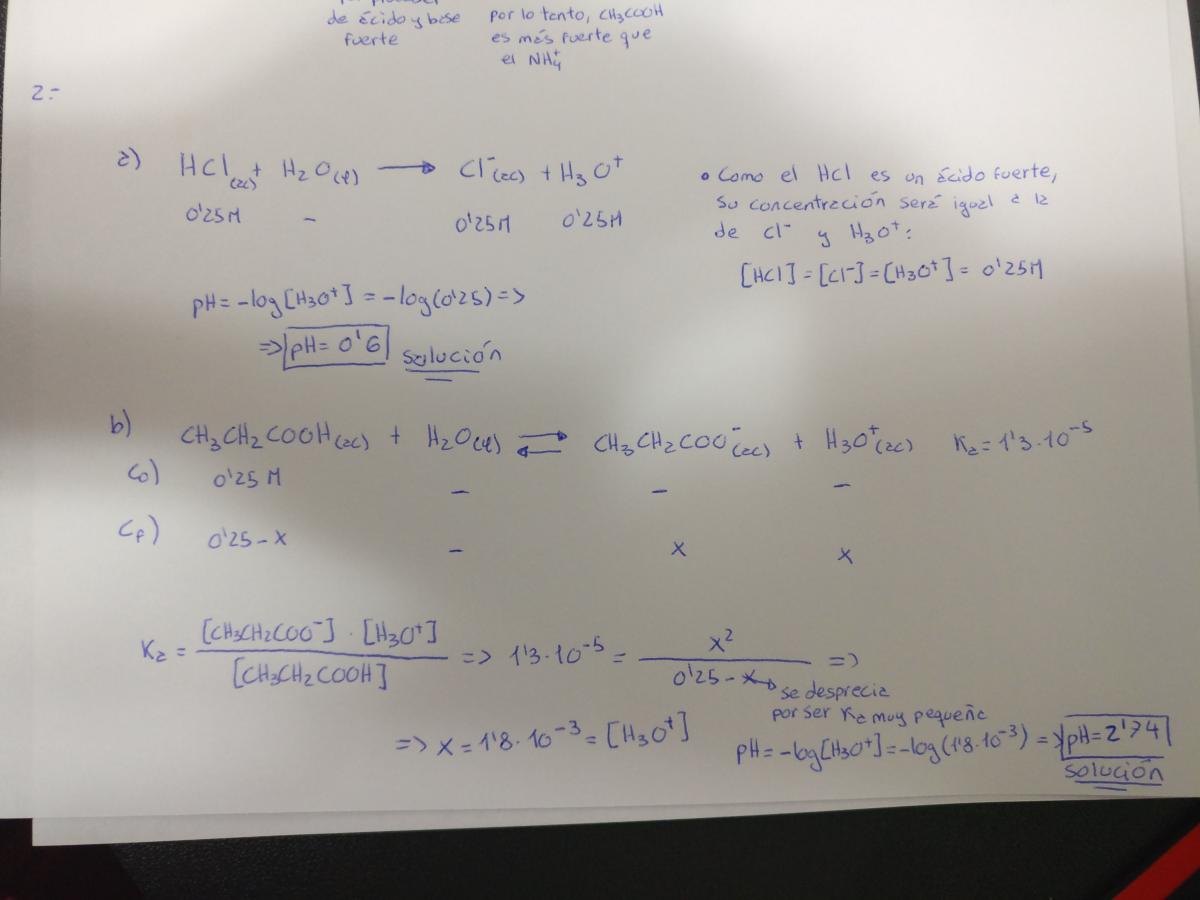 de ácido y base
fuerte
por lo tanto, CH3COOH
es más fuerte que
el NH4+
2.-
a) HCl(ac) + H2O(l) → Cl-(ac) + H3O+
0'25M - 0'25M 0'25M
• Como el HCl es un ácido fuerte,
su concentración será igual a la
de Cl- y H3O+:
[HCl] = [Cl-] = [H3O+] = 0'25M
pH = -log[H3O+] = -log(0'25) =>
=> pH = 0'6 solución
b) CH3CH2COOH(ac) + H2O(l) ⇌ CH3CH2COO-(ac) + H3O+(ac) Ka = 1'3·10-5
Co) 0'25 M - - -
Cf) 0'25 - x - x x
Ka = [CH3CH2COO-] · [H3O+] / [CH3CH2COOH] => 1'3·10-5 = x2 / 0'25 - x =>
se desprecia
por ser Ka muy pequeña
=> x = 1'8·10-3 = [H3O+]
pH = -log[H3O+] = -log(1'8·10-3) => pH = 2'74
solución